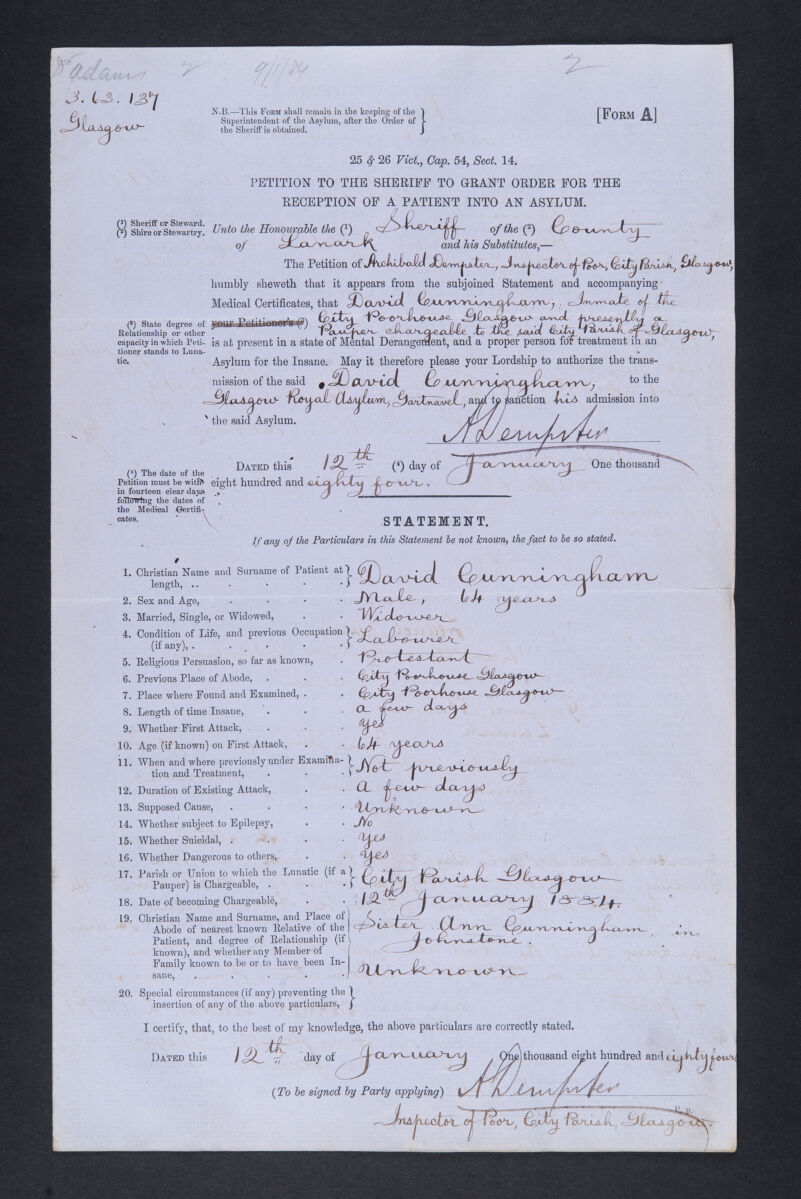 Dr Adams 2 9/1/84 2
3. 63. 137
Glasgow
N.B.—This Form shall remain in the keeping of the
Superintendent of the Asylum, after the Order of
the Sheriff is obtained.
[Form A]
25 & 26 Vict., Cap. 54, Sect. 14.
PETITION TO THE SHERIFF TO GRANT ORDER FOR THE
RECEPTION OF A PATIENT INTO AN ASYLUM.
(1) Sheriff or Steward.
(2) Shire or Stewartry.
Unto the Honourable the (1) Sheriff of the (2) County
of Lanark and his Substitutes,—
The Petition of Archibald Dempster, Inspector of Poor, City Parish, Glasgow,
humbly sheweth that it appears from the subjoined Statement and accompanying
Medical Certificates, that David Cunningham, Inmate of the
(3) State degree of
Relationship or other
capacity in which Peti-
tioner stands to Luna-
tic.
your Petitioner's (3) City Poorhouse Glasgow and presently a
Pauper chargeable to the said City Parish of Glasgow,
is at present in a state of Mental Derangement, and a proper person for treatment in an
Asylum for the Insane. May it therefore please your Lordship to authorize the trans-
mission of the said David Cunningham, to the
Glasgow Royal Asylum, Gartnavel, and to sanction his admission into
the said Asylum.
A Dempster
(4) The date of the
Petition must be with
in fourteen clear days
following the dates of
the Medical Certifi-
cates.
Dated this 12th (4) day of January One thousand
eight hundred and eighty four.
STATEMENT.
If any of the Particulars in this Statement be not known, the fact to be so stated.
1. Christian Name and Surname of Patient at
length, .. David Cunningham
2. Sex and Age, Male, 64 years
3. Married, Single, or Widowed, Widower
4. Condition of Life, and previous Occupation
(if any), Labourer
5. Religious Persuasion, so far as known, Protestant
6. Previous Place of Abode, City Poorhouse Glasgow
7. Place where Found and Examined, City Poorhouse Glasgow
8. Length of time Insane, a few days
9. Whether First Attack, Yes
10. Age (if known) on First Attack, 64 years
11. When and where previously under Examina-
tion and Treatment, Not previously
12. Duration of Existing Attack, A few days
13. Supposed Cause, Unknown
14. Whether subject to Epilepsy, No
15. Whether Suicidal, Yes
16. Whether Dangerous to others, Yes
17. Parish or Union to which the Lunatic (if a
Pauper) is Chargeable, City Parish Glasgow
18. Date of becoming Chargeable, 12th January 1884.
19. Christian Name and Surname, and Place of
Abode of nearest known Relative of the Sister Ann Cunningham, in
Patient, and degree of Relationship (if Johnstone.
known), and whether any Member of
Family known to be or to have been In-
sane, Unknown
20. Special circumstances (if any) preventing the
insertion of any of the above particulars,
I certify, that, to the best of my knowledge, the above particulars are correctly stated.
Dated this 12th day of January One thousand eight hundred and eighty four
(To be signed by Party applying) A Dempster
Inspector of Poor, City Parish, Glasgow.